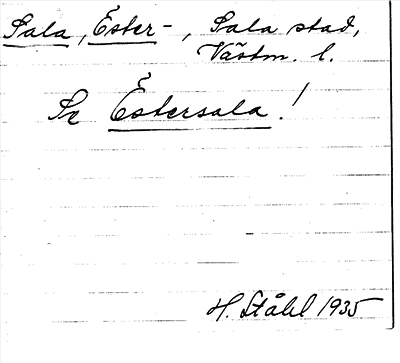 Sala, Ester-, Sala stad,
Västm. l.
Se Estersala!
H. Ståhl 1935